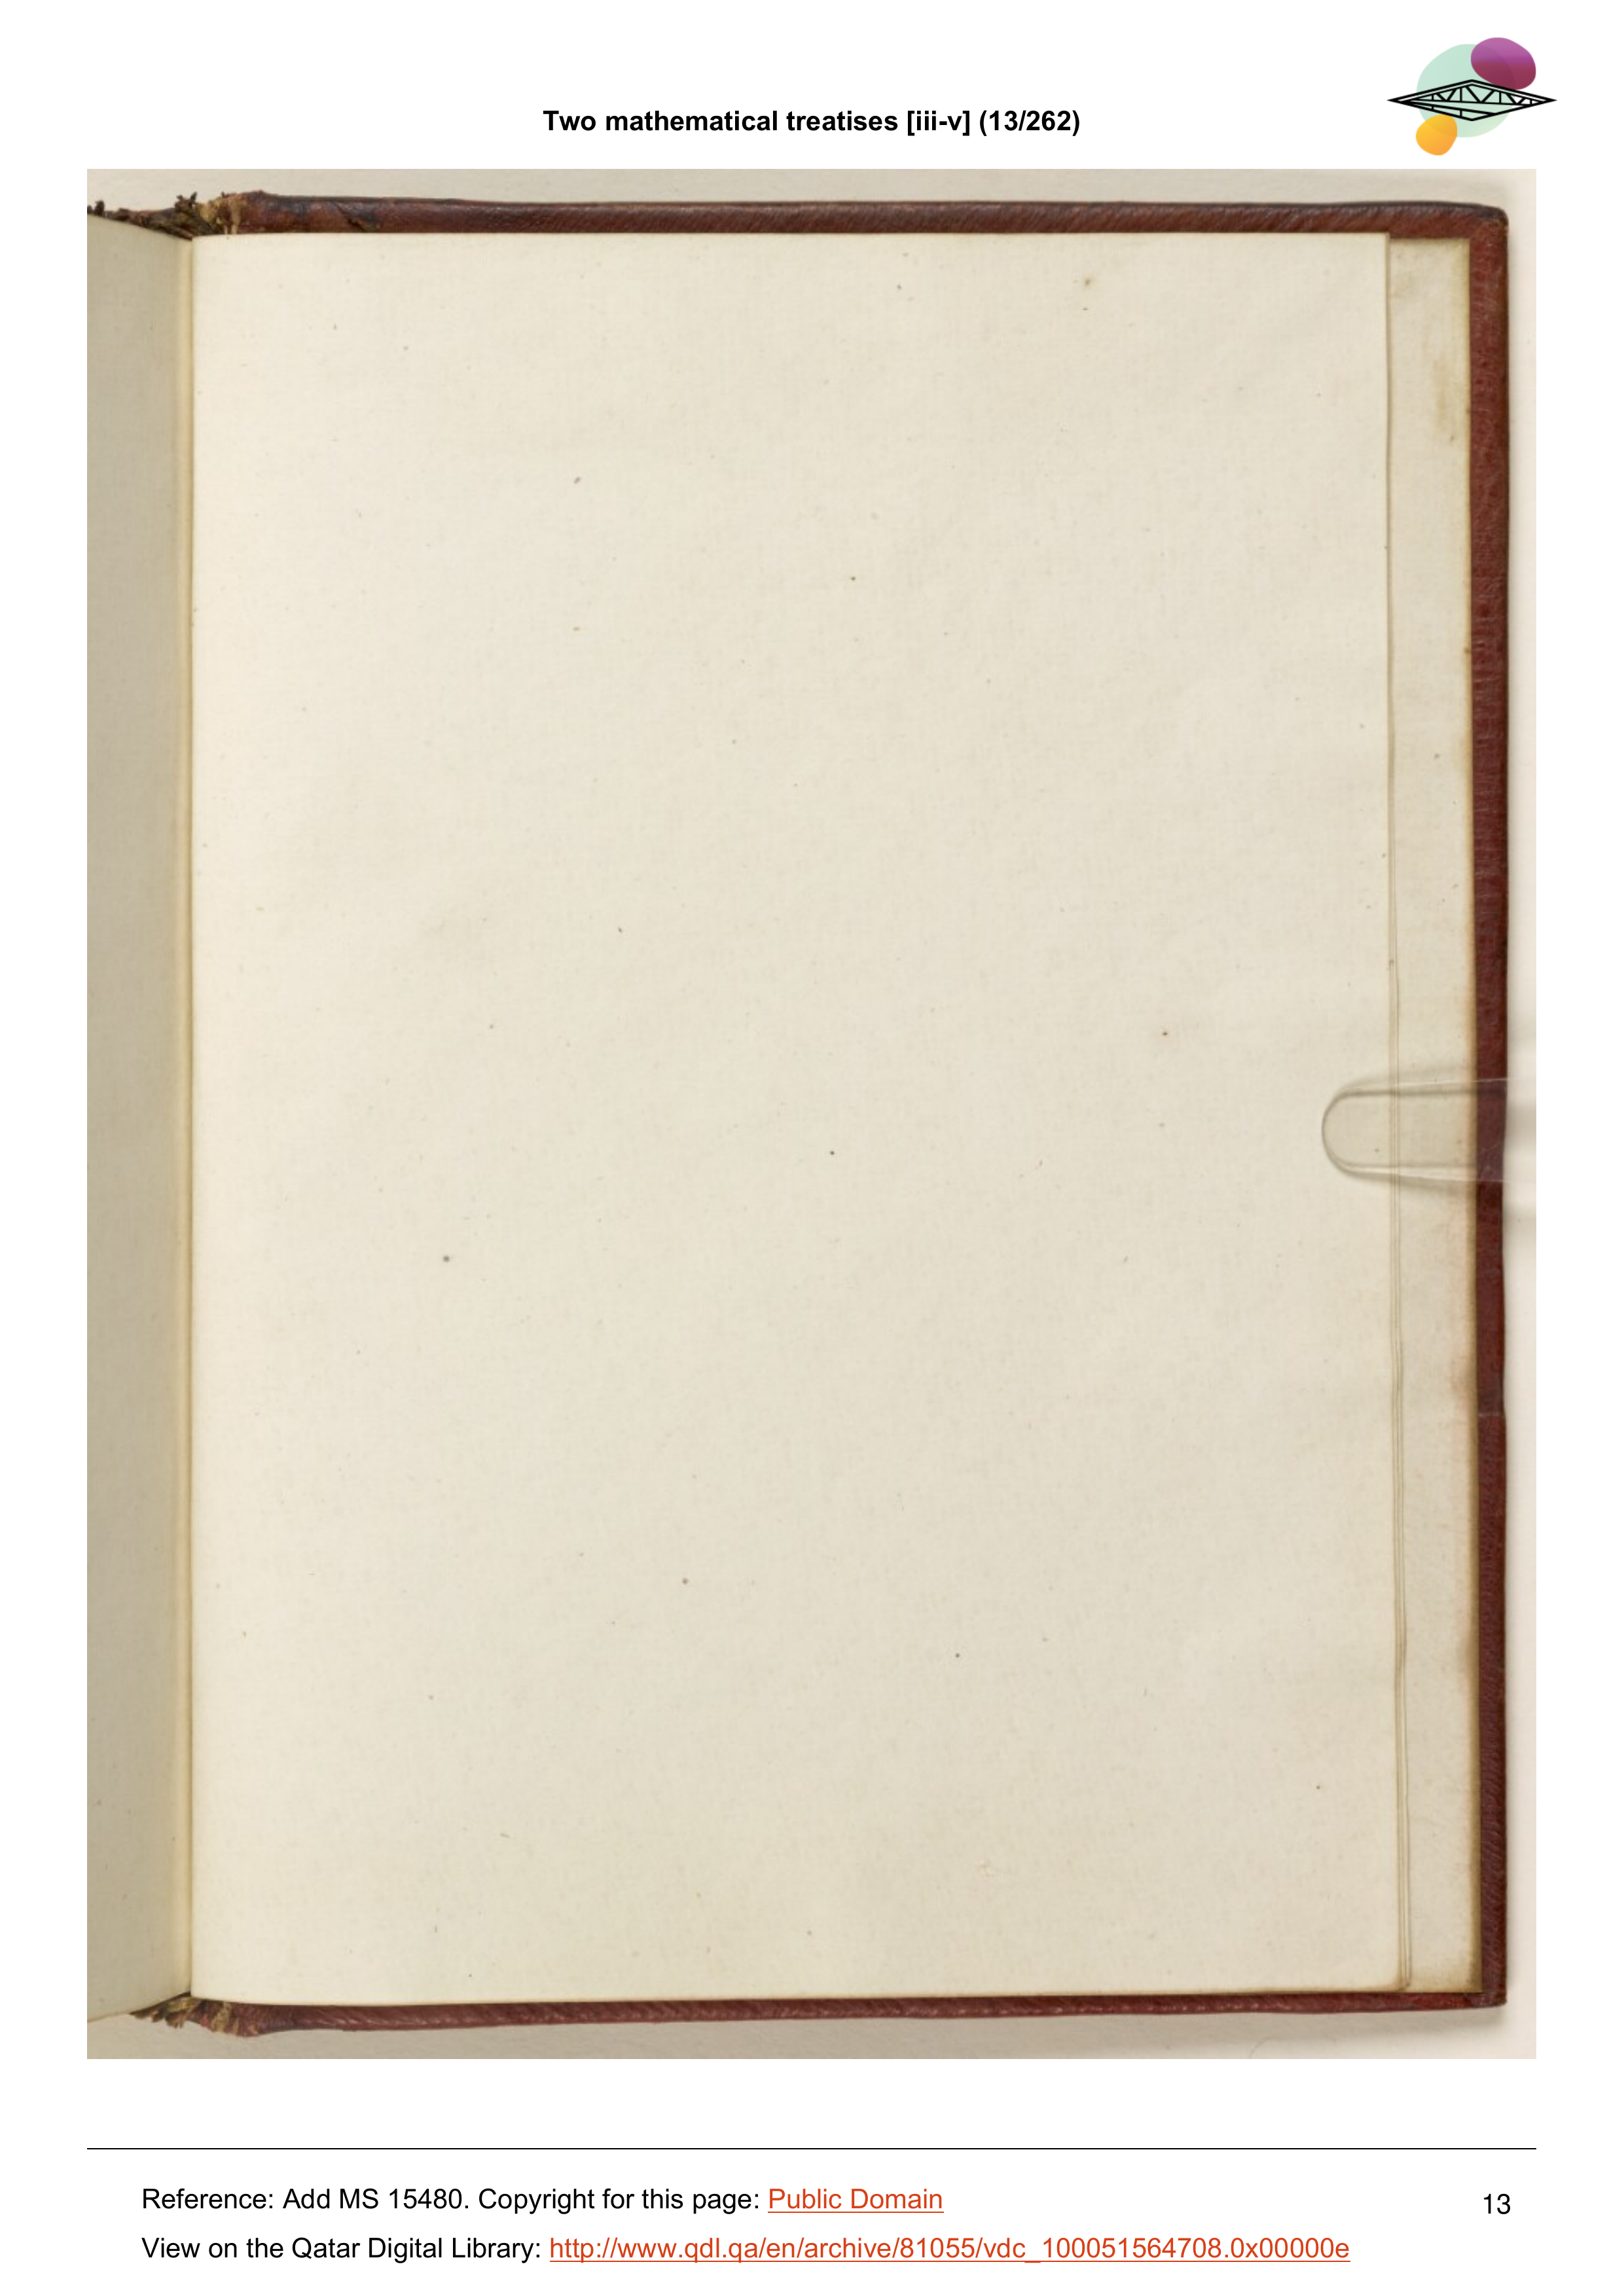 Two mathematical treatises [iii-v] (13/262)
Reference: Add MS 15480. Copyright for this page: Public Domain
13
View on the Qatar Digital Library: http://www.qdl.qa/en/archive/81055/vdc_100051564708.0x00000e